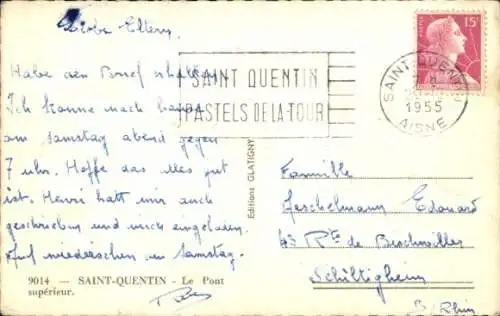 Liebe Eltern,
Habe den Brief erhalten.
Ich komme nach hause
am samstag abend gegen
7 uhr. Hoffe das alles gut
ist. Henri hatt mir auch
geschrieben und mich eingeladen.
Auf wiedersehen am Samstag.
9014 — SAINT-QUENTIN - Le Pont
supérieur.
SAINT QUENTIN
PASTELS DE LA TOUR
Editions GLATIGNY
15F
SAINT-QUENTIN
1955
AISNE
Famille
Jeschelmann Edouard
43 Rte de Bischwiller
Schiltigheim
B. Rhin